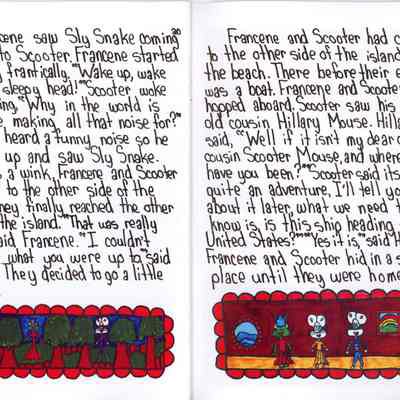 cene saw Sly Snake coming 20
to Scooter. Francene started
frantically. "Wake up, wake
sleepy head!" Scooter woke
ing, "Why in the world is
e making all that noise for?"
heard a funny noise so he
up and saw Sly Snake.
s a wink, Francene and Scooter
to the other side of the
hey finally reached the other
the island. "That was really
aid Francene." "I couldn't
what you were up to," said
They decided to go a little
Francene and Scooter had c
to the other side of the island
the beach. There before their e
was a boat. Francene and Scoote
hopped aboard. Scooter saw his
old cousin Hillary Mouse. Hill
said, "Well if it isn't my dear c
cousin Scooter Mouse, and where
have you been?" "Scooter said its
quite an adventure, I'll tell yo
about it later, what we need t
know is, is this ship heading
United States?" "Yes it is," said H
Francene and Scooter hid in a s
place until they were home